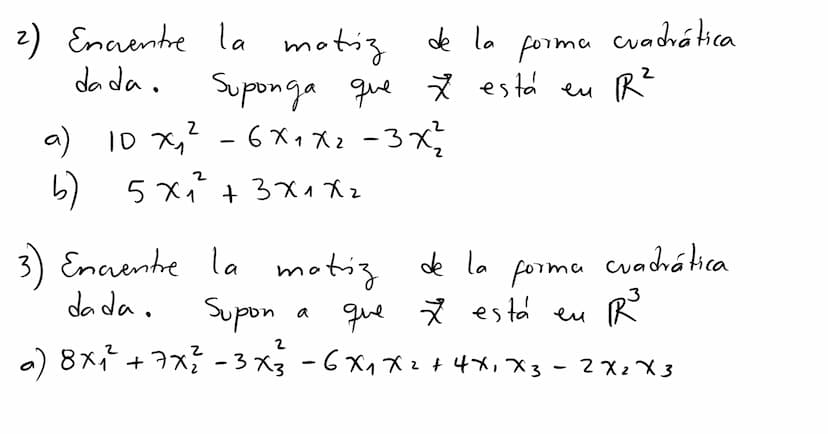 2) Encuentre la matriz de la forma cuadrática
dada. Suponga que x⃗ está en ℝ²
a) 10 x₁² - 6x₁x₂ - 3x₂²
b) 5x₁² + 3x₁x₂
3) Encuentre la matriz de la forma cuadrática
dada. Supon a que x⃗ está en ℝ³
a) 8x₁² + 7x₂² - 3x₃² - 6x₁x₂ + 4x₁x₃ - 2x₂x₃